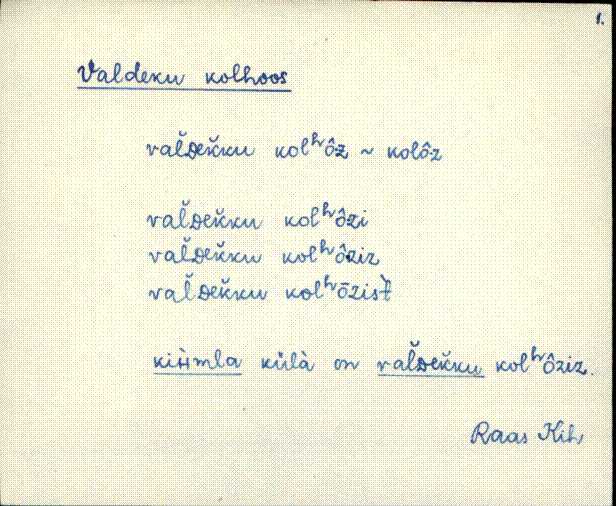 1.
Valdeku kolhoos
val̆ᴅek̆ku kolʰôz ~ kolôz
val̆ᴅek̆ku kolʰôzi
val̆ᴅek̆ku kolʰôziz
val̆ᴅek̆ku kolʰōzist̀
küla̭ on val̆ᴅek̆ku kolʰôziz.
Raas Kih